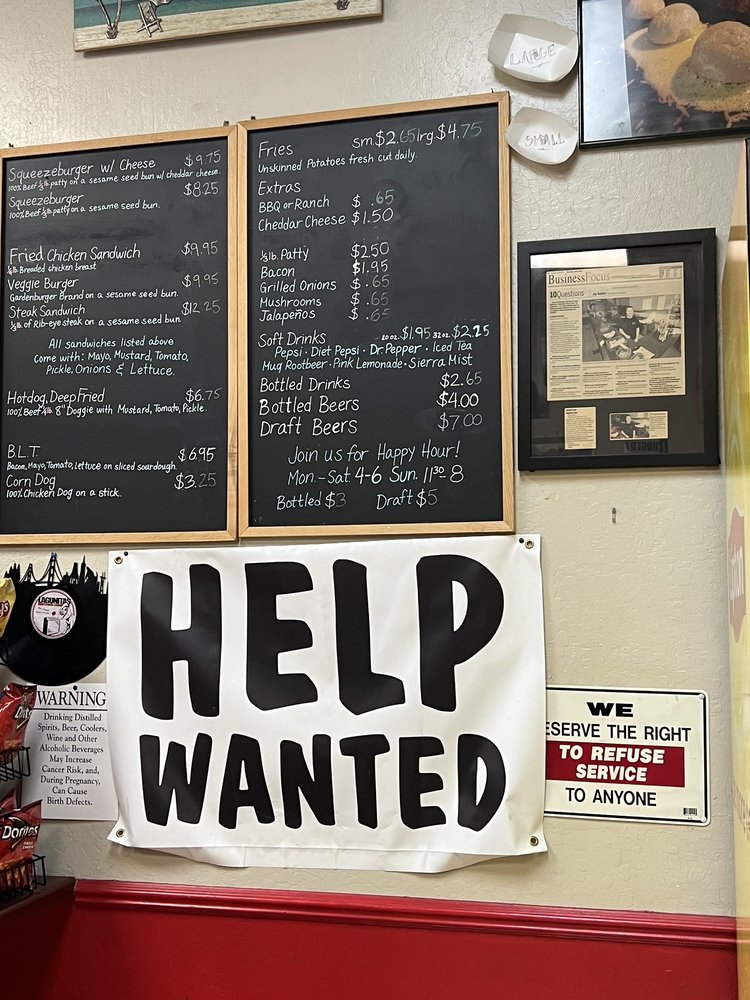 LARGE
SMALL
Squeezeburger w/ Cheese $9.75
100% Beef ⅓ lb patty on a sesame seed bun w/ cheddar cheese.
Squeezeburger $8.25
100% Beef ⅓ lb patty on a sesame seed bun.
Fried Chicken Sandwich $9.95
¼ lb Breaded chicken breast
Veggie Burger $9.95
Gardenburger Brand on a sesame seed bun.
Steak Sandwich $12.25
⅓ lb of Rib-eye steak on a sesame seed bun
All sandwiches listed above
Come with: Mayo, Mustard, Tomato,
Pickle, Onions & Lettuce.
Hotdog, Deep Fried $6.75
100% Beef ¼ lb 8" Doggie with Mustard, Tomato, Pickle
B.L.T. $6.95
Bacon, Mayo, Tomato, lettuce on sliced sourdough.
Corn Dog $3.25
100% Chicken Dog on a stick.
Fries sm. $2.65 lrg. $4.75
Unskinned Potatoes fresh cut daily.
Extras
BBQ or Ranch $ .65
Cheddar Cheese $1.50
⅓ lb. Patty $2.50
Bacon $1.95
Grilled Onions $ .65
Mushrooms $ .65
Jalapeños $ .65
Soft Drinks 20 oz. $1.95 32 oz. $2.25
Pepsi · Diet Pepsi · Dr. Pepper · Iced Tea
Mug Rootbeer · Pink Lemonade · Sierra Mist
Bottled Drinks $2.65
Bottled Beers $4.00
Draft Beers $7.00
Join us for Happy Hour!
Mon.-Sat 4-6 Sun. 11:30-8
Bottled $3 Draft $5
BusinessFocus
10 Questions
LAGUNITAS
WARNING
Drinking Distilled
Spirits, Beer, Coolers,
Wine and Other
Alcoholic Beverages
May Increase
Cancer Risk, and,
During Pregnancy,
Can Cause
Birth Defects.
Doritos
HELP
WANTED
WE
ESERVE THE RIGHT
TO REFUSE
SERVICE
TO ANYONE